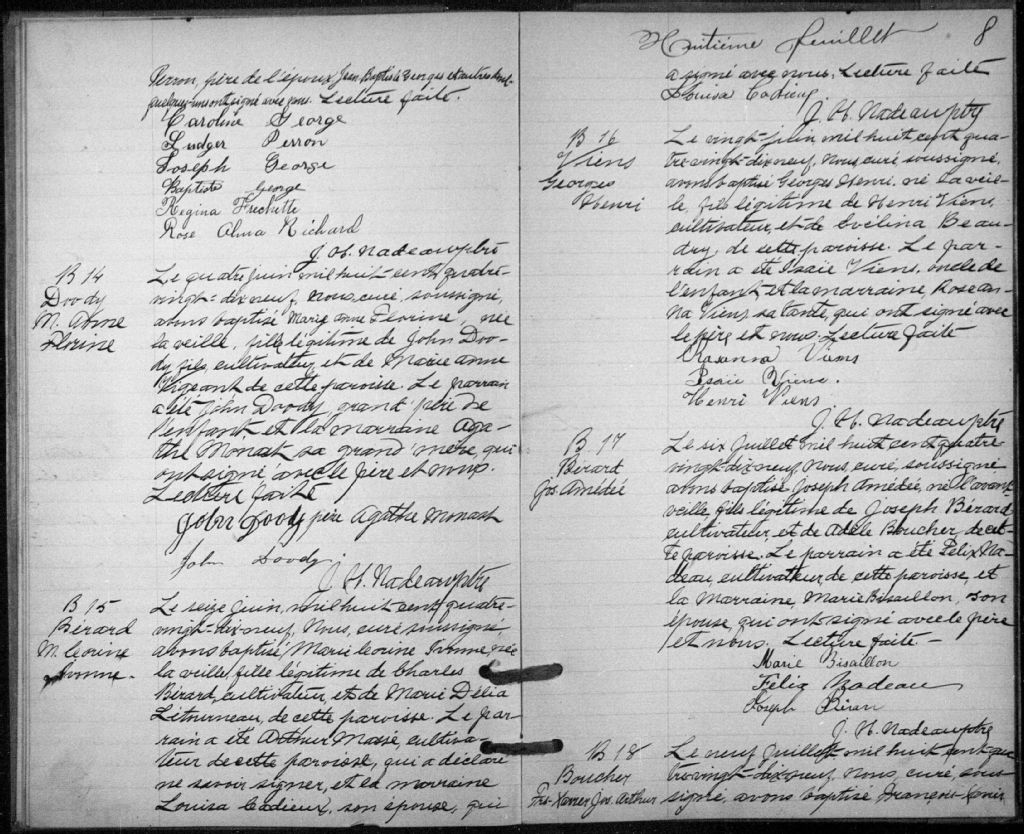 Perron, père de l'époux, Jean Baptiste Georges et autres dont
quelques-uns ont signé avec nous. Lecture faite.
Caroline George
Ludger Perron
Joseph George
Baptiste George
Regina Frechette
Rose Alma Richard
J. H. Nadeau ptre
B 14
Doody
M. Anne
Florine
Le quatre juin mil huit cent quatre-
vingt-dix neuf, nous, curé, soussigné,
avons baptisé Marie Anne Florine, née
la veille, fille légitime de John Doo-
dy fils, cultivateur, et de Marie Anne
Vigeant de cette paroisse. Le parrain
a été John Doody, grand'père de
l'enfant et la marraine Aga-
the Monast sa grand'mère, qui
ont signé avec le père et nous.
Lecture faite
John Doody père Agathe Monast
John Doody
J. H. Nadeau ptre
B 15
Bérard
M. Leorine
Ivonne.
Le seize juin, mil huit cent quatre-
vingt-dix neuf, nous, curé soussigné,
avons baptisé, Marie Leorine Ivonne, née
la veille, fille légitime de Charles
Bérard, cultivateur, et de Marie Délia
Létourneau, de cette paroisse. Le par-
rain a été Arthur Massé, cultiva-
teur de cette paroisse, qui a déclaré
ne savoir signer, et la marraine
Louisa Cadieux, son épouse, qui
Huitième feuillet 8
a signé avec nous. Lecture faite
Louisa Cadieux
J. H. Nadeau ptre
B 16
Viens
Georges
Henri
Le vingt juin mil huit cent qua-
tre vingt-dix neuf, nous, curé soussigné,
avons baptisé Georges Henri, né la veil-
le, fils légitime de Henri Viens,
cultivateur, et de Evélina Beau-
dry, de cette paroisse. Le par-
rain a été Isaïe Viens, oncle de
l'enfant et la marraine, Rose an-
na Viens, sa tante, qui ont signé avec
le père et nous. Lecture faite
Rosanna Viens
Isaïe Viens.
Henri Viens
J. H. Nadeau ptre
B. 17
Bérard
Jos. Amédée
Le six juillet mil huit cent quatre
vingt-dix neuf, nous, curé, soussigné
avons baptisé Joseph Amédée, né l'avant
veille, fils légitime de Joseph Bérard,
cultivateur, et de Adèle Boucher, de cet-
te paroisse. Le parrain a été Felix Na-
deau, cultivateur de cette paroisse, et
la Marraine, Marie Bisaillon, son
épouse, qui ont signé avec le père
et nous. Lecture faite -
Marie Bisaillon
Félix Nadeau
Joseph Bérard
J. H. Nadeau ptre
B 18
Boucher
Frs-Xavier Jos. Arthur
Le neuf juillet mil huit cent qua-
tre vingt-dix neuf, nous, curé, sous-
signé, avons baptisé François-Xavier